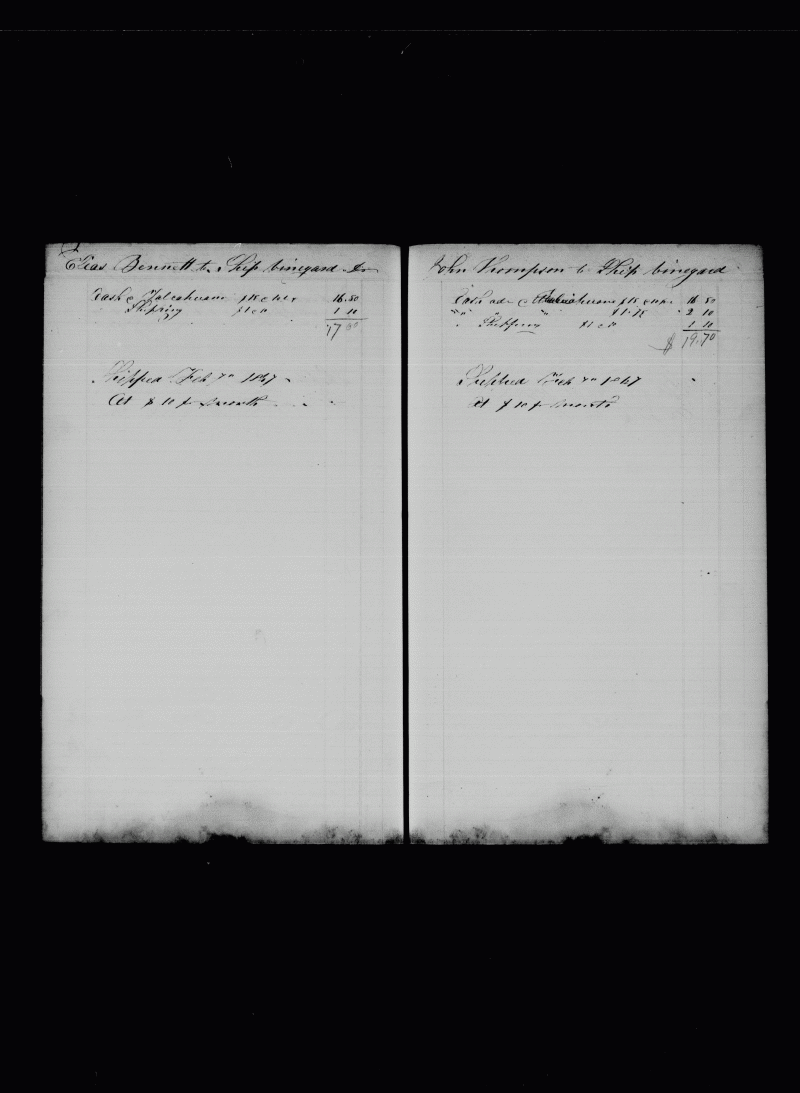 Bennett to Ship Vineyard Dr
Cash @ Talcahuano 16.50
" Shipping 1 10
17 60
Shipped Feb 1867
At $ 10 month
John Thompson to Ship Vineyard
Cash adv @ Talcahuano 16 50
" " " $1.75 2 10
" Shipping 1 10
$ 19.70
Shipped Feb 1867
At $ 10 month